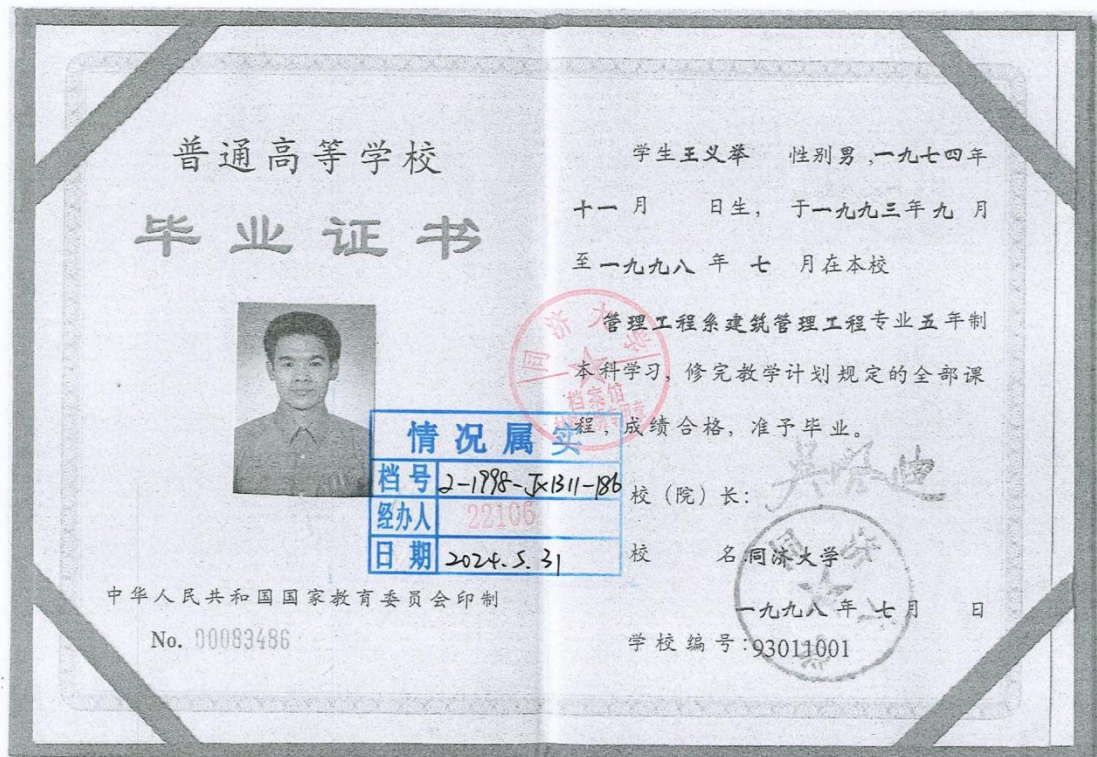 普通高等学校
毕业证书
情况属实
档号 2-1998-JX1311-186
经办人 22106
日期 2024.5.31
中华人民共和国国家教育委员会印制
No. 00083486
学生王义举 性别男,一九七四年
十一月 日生, 于一九九三年九月
至一九九八年七月在本校
管理工程系建筑管理工程专业五年制
本科学习, 修完教学计划规定的全部课
程, 成绩合格, 准予毕业。
同济大学
档案馆
校(院)长: 吴启迪
校 名:同济大学
一九九八年七月 日
学校编号:93011001
同济大学